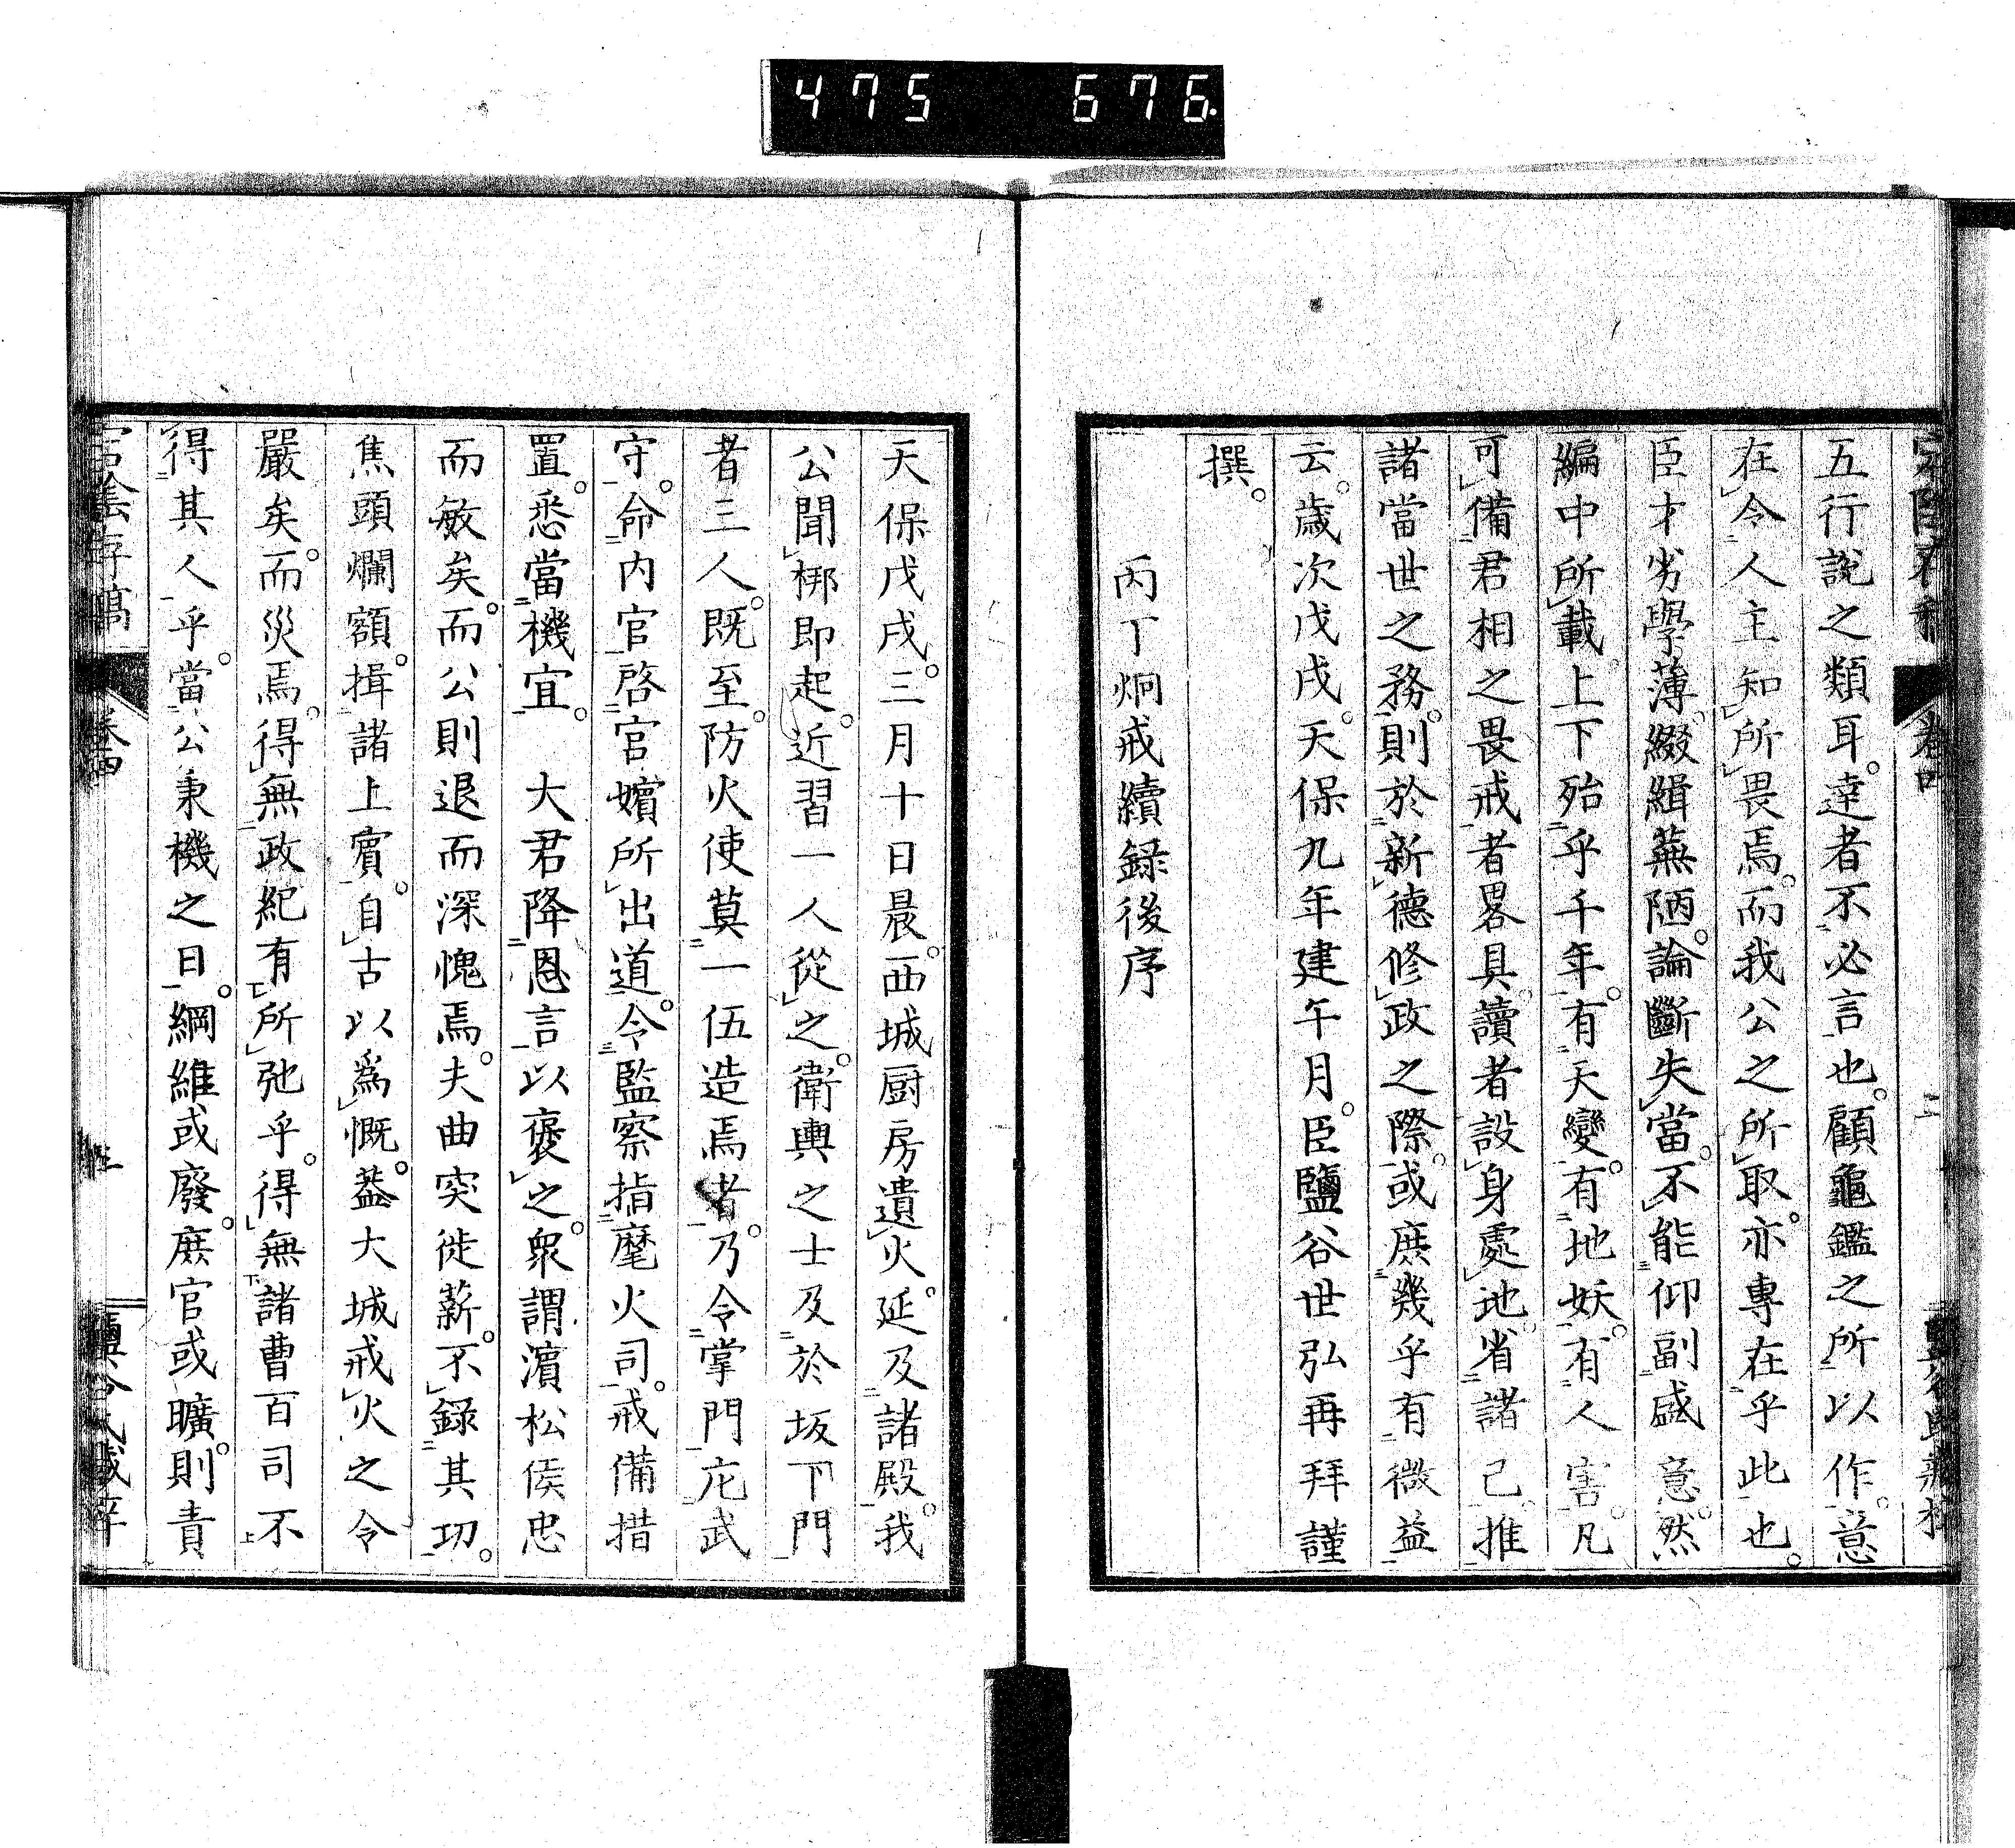 475 676.
五行說之類耳。達者不必言也。顧龜鑑之所以作。意
在令人主知所畏焉。而我公之所取。亦專在乎此也。
臣才劣學薄。綴緝蕪陋。論斷失當。不能仰副盛意。然
編中所載。上下殆乎千年。有天變。有地妖。有人害。凡
可備君相之畏戒者畧具。讀者設身處地。省諸己。推
諸當世之務。則於新德修政之際。或庶幾乎有微益
云。歲次戊戌。天保九年建午月。臣鹽谷世弘再拜謹
撰。
丙丁炯戒續錄後序
天保戊戌。三月十日晨。西城厨房遺火。延及諸殿。我
公聞梆即起。近習一人從之。衛輿之士及於坂下門
者三人。既至。防火使莫一伍造焉者。乃令掌門庀武
守。命內官啓宮嬪所出道。令監察指麾火司。戒備措
置。悉當機宜。 大君降恩言以褒之。衆謂濱松侯忠
而敏矣。而公則退而深愧焉。夫曲突徙薪。不錄其功。
焦頭爛額。揖諸上賓。自古以爲慨。葢大城戒火之令
嚴矣。而災焉。得無政紀有所弛乎。得無諸曹百司不
得其人乎。當公秉機之日。綱維或廢。庶官或曠。則責
宕陰存稿 卷四